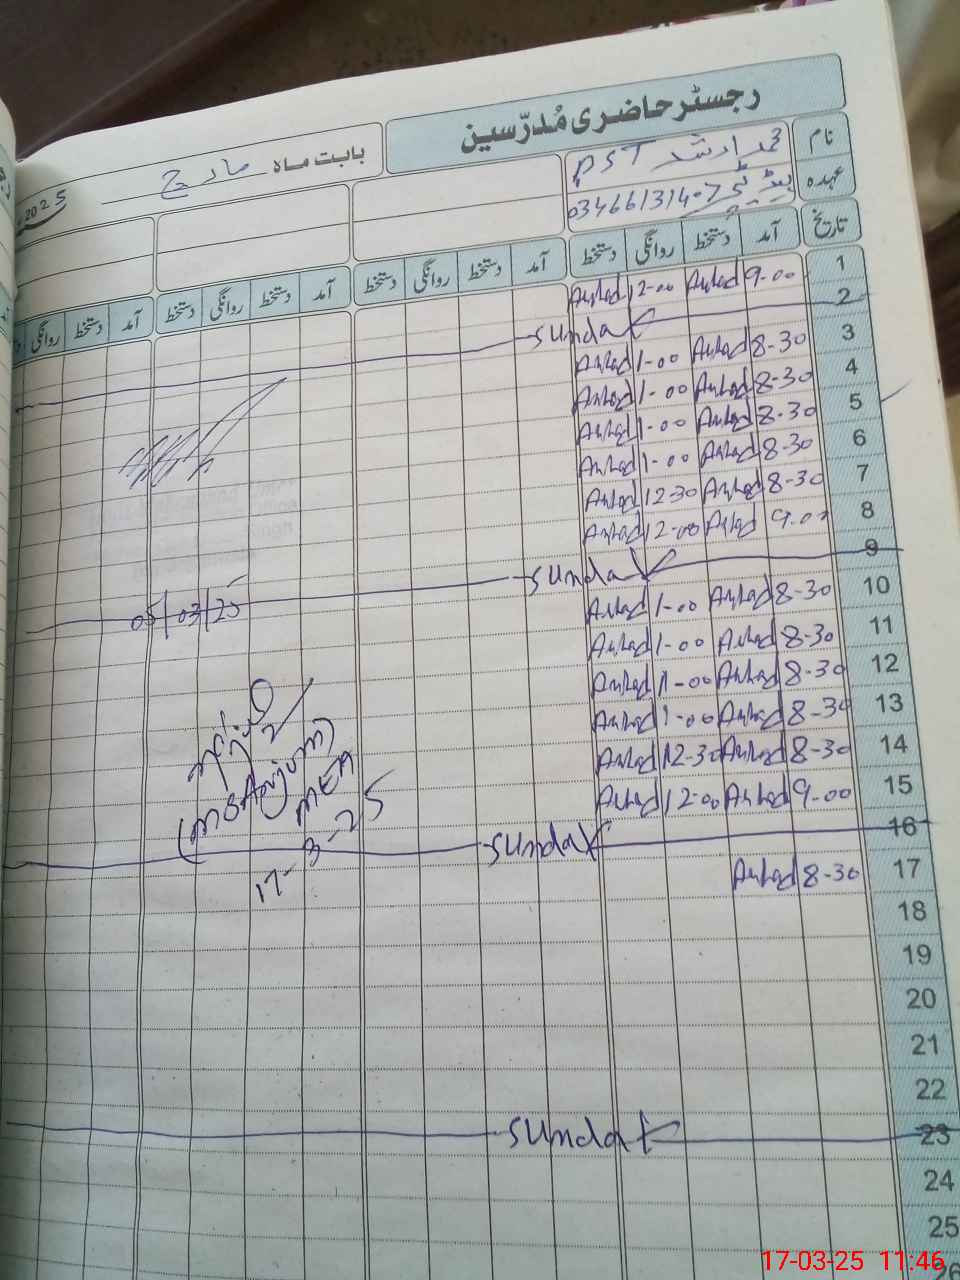 رجسٹر حاضری مُدرّسین
بابت ماہ مارچ 2025
نام محمد ارشد PST
عہدہ ہیڈ ٹیچر 03466131407
تاریخ آمد دستخط روانگی دستخط آمد دستخط روانگی دستخط آمد دستخط روانگی دستخط آمد دستخط روانگی
1 9-00 Arshad 12-00 Arshad
2 Sunday
3 8-30 Arshad 1-00 Arshad
4 8-30 Arshad 1-00 Arshad
5 8-30 Arshad 1-00 Arshad
6 8-30 Arshad 1-00 Arshad
7 8-30 Arshad 12-30 Arshad
8 9-00 Arshad 12-00 Arshad
9 Sunday
05/03/25
10 8-30 Arshad 1-00 Arshad
11 8-30 Arshad 1-00 Arshad
12 8-30 Arshad 1-00 Arshad
13 8-30 Arshad 1-00 Arshad
14 8-30 Arshad 12-30 Arshad
15 9-00 Arshad 12-00 Arshad
MEA
16 Sunday
17-3-25
17 8-30 Arshad
18
19
20
21
22
23 Sunday
24
25
26
17-03-25 11:46